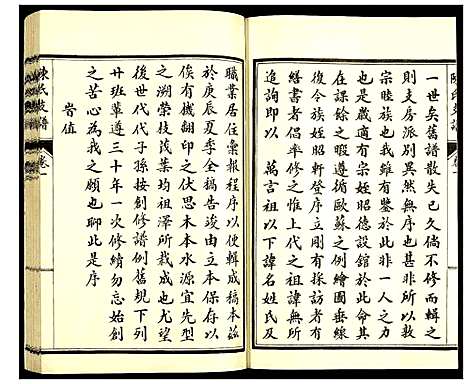 一世矣舊譜散失已久倘不修而輯之
則支房派別異然無序也甚非所以敦
宗睦族也歲適有宗姪昭德設館於此命其
在課餘之暇遵循歐蘇之例繪圖垂線
俊令族姪昭登序立則有採訪者有
繕書者有倅修上代之祖諱無所
追詢即以萬言祖以下諱名姓氏及
職業居住彙報程序以便輯成稿本茲
於庚辰夏季全稿告竣由立本先生
俟有機翻印之伏思木本水源宜先型
之溯榮枝茂葉均祖澤所栽成也尤望
後世代代子孫按創修譜例舊規下列
廿班輩遵三十年一次修續勿忘始創
之苦心為我之願也聊此是序
岧值
陳氏支譜
卷一